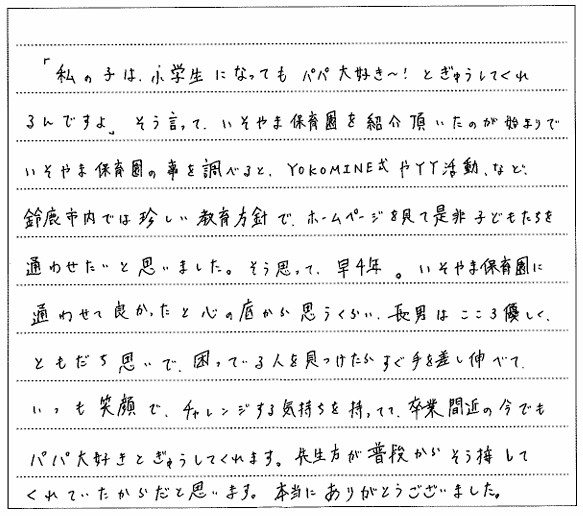 「私の子は、小学生になってもパパ大好き〜！とぎゅうしてくれ
るんですよ」そう言って、いそやま保育園を紹介頂いたのが始まりで
いそやま保育園の事を調べると、YOKOMINE式やYY活動、など、
鈴鹿市内では珍しい教育方針で、ホームページを見て是非子どもたちを
通わせたいと思いました。そう思って、早4年。いそやま保育園に
通わせて良かったと心の底から思うくらい、長男はこころ優しく、
ともだち思いで、困っている人を見つけたらすぐ手を差し伸べて、
いつも笑顔で、チャレンジする気持ちを持ってて、卒業間近の今でも
パパ大好きとぎゅうしてくれます。先生方が普段からそう接して
くれていたからだと思います。本当にありがとうございました。